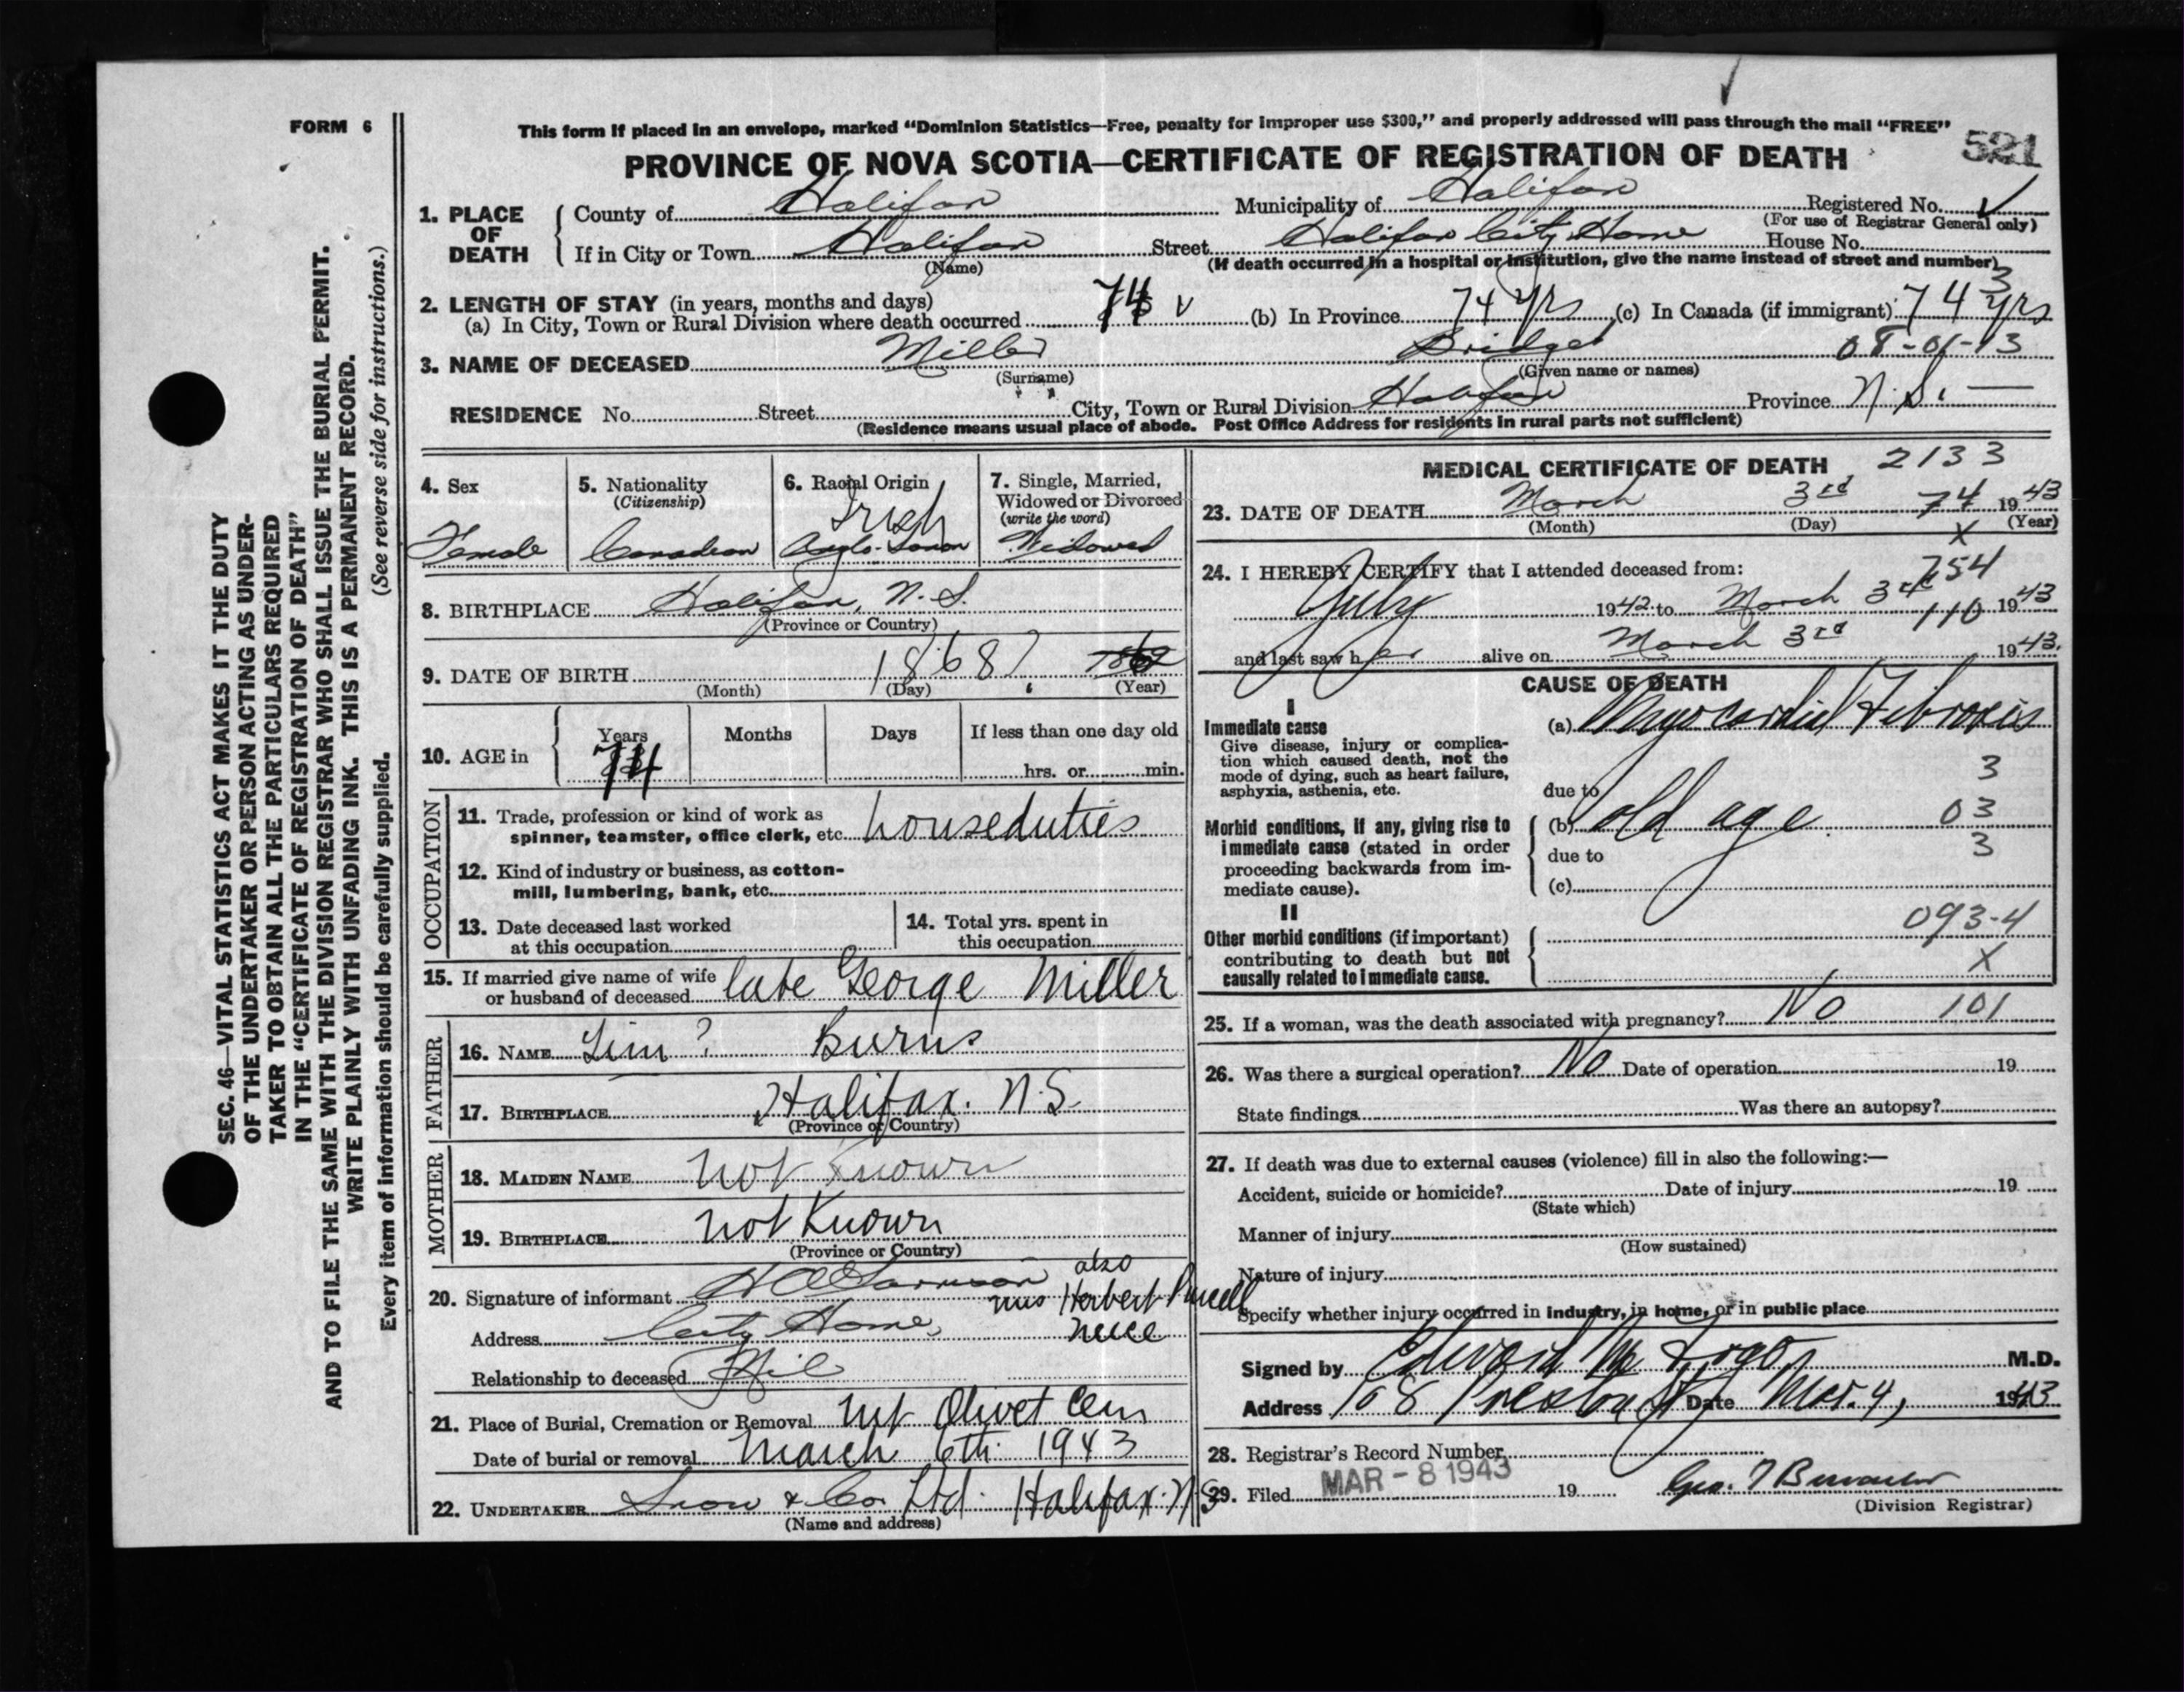 FORM 6
This form if placed in an envelope, marked “Dominion Statistics—Free, penalty for improper use $300,” and properly addressed will pass through the mail “FREE”
521
PROVINCE OF NOVA SCOTIA—CERTIFICATE OF REGISTRATION OF DEATH
1. PLACE OF DEATH
County of Halifax Municipality of Halifax Registered No. ✓
(For use of Registrar General only)
If in City or Town Halifax Street Halifax City Home House No.
(Name) (If death occurred in a hospital or institution, give the name instead of street and number)
2. LENGTH OF STAY (in years, months and days)
(a) In City, Town or Rural Division where death occurred 74 (b) In Province 74 yrs (c) In Canada (if immigrant) 74 yrs 3
3. NAME OF DECEASED Miller Bridget 08-01-13
(Surname) (Given name or names)
RESIDENCE No. Street City, Town or Rural Division Halifax Province N.S. —
(Residence means usual place of abode. Post Office Address for residents in rural parts not sufficient)
4. Sex
Female
5. Nationality
(Citizenship)
Canadian
6. Racial Origin
Irish
Anglo-Saxon
7. Single, Married,
Widowed or Divorced
(write the word)
Widowed
8. BIRTHPLACE Halifax, N.S.
(Province or Country)
9. DATE OF BIRTH 1868?
(Month) (Day) (Year)
10. AGE in
Years Months Days If less than one day old
74 hrs. or min.
OCCUPATION
11. Trade, profession or kind of work as
spinner, teamster, office clerk, etc. houseduties
12. Kind of industry or business, as cotton-
mill, lumbering, bank, etc.
13. Date deceased last worked
at this occupation
14. Total yrs. spent in
this occupation
15. If married give name of wife
or husband of deceased late George Miller
FATHER
16. NAME Jim? Burns
17. BIRTHPLACE Halifax. N.S.
(Province or Country)
MOTHER
18. MAIDEN NAME not Known
19. BIRTHPLACE not Known
(Province or Country)
also
20. Signature of informant mrs Herbert Purcell
Address City Home, niece
Relationship to deceased Nil
21. Place of Burial, Cremation or Removal Mt Olivet Cem
Date of burial or removal March 6th 1943
22. UNDERTAKER Snow & Co Ltd. Halifax. N.S
(Name and address)
MEDICAL CERTIFICATE OF DEATH 2133
23. DATE OF DEATH March 3rd 74 1943
(Month) (Day) X (Year)
24. I HEREBY CERTIFY that I attended deceased from: 754
July 1942 to March 3rd 110 1943
and last saw her alive on March 3rd 1943.
CAUSE OF DEATH
I
Immediate cause
Give disease, injury or complica-
tion which caused death, not the
mode of dying, such as heart failure,
asphyxia, asthenia, etc.
(a) Myocardial Fibrosis
3
due to
Morbid conditions, if any, giving rise to
immediate cause (stated in order
proceeding backwards from im-
mediate cause).
(b) old age. 03
due to 3
(c)
II
Other morbid conditions (if important)
contributing to death but not
causally related to immediate cause.
093-4
X
25. If a woman, was the death associated with pregnancy? No 101
26. Was there a surgical operation? No Date of operation 19
State findings Was there an autopsy?
27. If death was due to external causes (violence) fill in also the following:—
Accident, suicide or homicide? Date of injury 19
(State which)
Manner of injury
(How sustained)
Nature of injury
Specify whether injury occurred in industry, in home, or in public place
Signed by Edward M. Fogo M.D.
Address 108 Preston St Date Mar. 4, 1943
28. Registrar's Record Number
29. Filed MAR - 8 1943 19 Geo. T
(Division Registrar)
SEC. 46—VITAL STATISTICS ACT MAKES IT THE DUTY
OF THE UNDERTAKER OR PERSON ACTING AS UNDER-
TAKER TO OBTAIN ALL THE PARTICULARS REQUIRED
IN THE “CERTIFICATE OF REGISTRATION OF DEATH”
AND TO FILE THE SAME WITH THE DIVISION REGISTRAR WHO SHALL ISSUE THE BURIAL PERMIT.
WRITE PLAINLY WITH UNFADING INK. THIS IS A PERMANENT RECORD.
Every item of information should be carefully supplied. (See reverse side for instructions.)